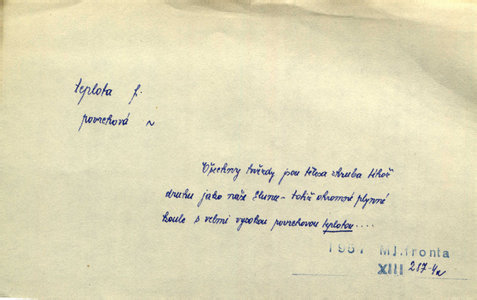 teplota f.
povrchová ~
Všechny hvězdy jsou tělesa zhruba téhož
druhu jako naše Slunce - totiž ohromné plynné
koule s velmi vysokou povrchovou teplotou....
1957 Ml.fronta
XIII 217-4a